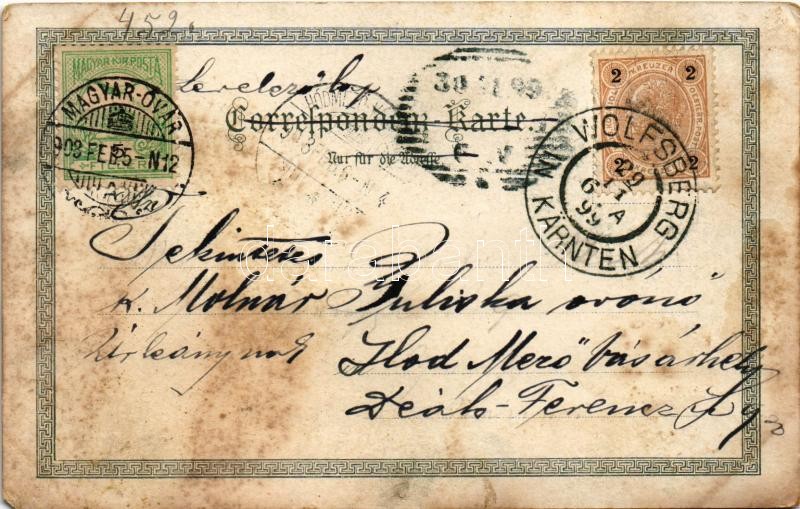 452.
MAGYAR KIR. POSTA
MAGYAR-ÓVÁR
903 FEB 5 - N12
levelezőlap
30 99
Correspondenz-Karte.
Nur für die Adresse
2 KREUZER 2
2 2
WOLFSBERG
29
6 A
99
IN KÄRNTEN
Tekintetes
k. Molnár Juliska óvonő
Úrleánynak
Hod Mező Vásárhely
Deák Ferencz